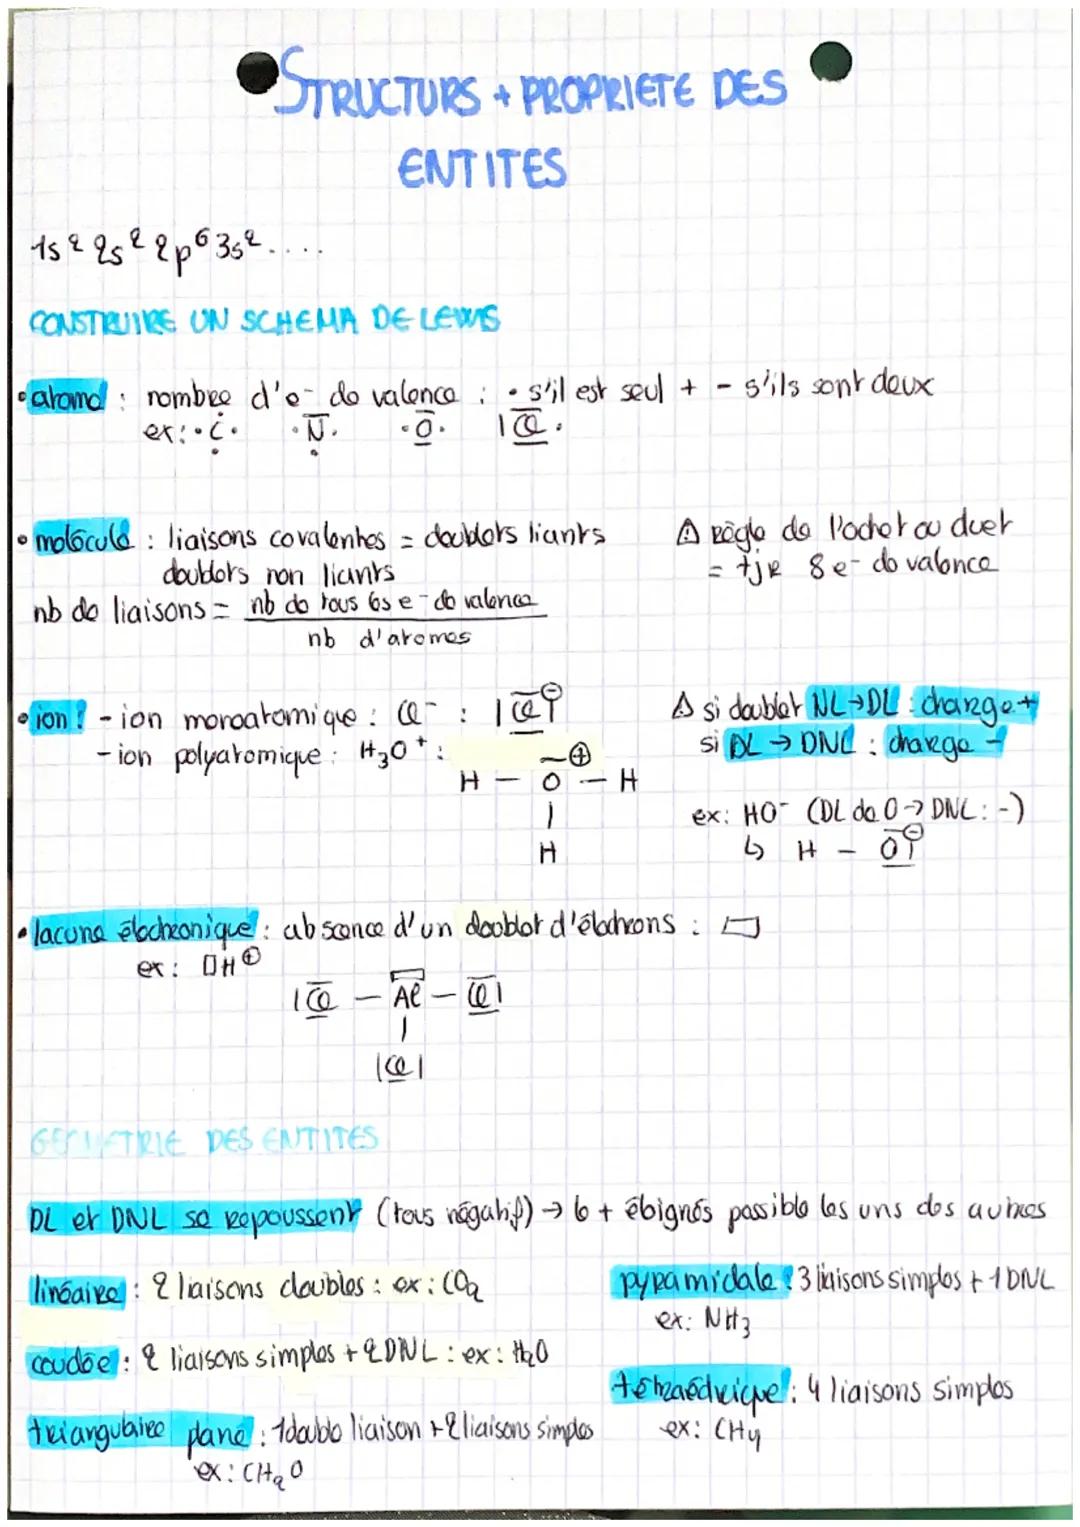 STRUCTURS + PROPRIETE DES
ENTITES
1s² 2s² 2p⁶ 3s² ....
CONSTRUIRE UN SCHEMA DE LEWIS
• atome : nombre d'e⁻ de valence : • s'il est seul + - s'ils sont deux
ex: C N O Cl
• molécule : liaisons covalentes = doublets liants
doublets non liants
⚠ règle de l'octet ou duet
= tjr 8 e⁻ de valence
nb de liaisons = nb de tous les e⁻ de valence
nb d'atomes
• ion : - ion monoatomique : Cl⁻ : |Cl|⊖
- ion polyatomique : H₃O⁺ :
H — O — H ⊕
|
H
⚠ si doublet NL → DL : charge +
si DL → DNL : charge -
ex: HO⁻ (DL de O → DNL : -)
↳ H - O|⊖
• lacune électronique : absence d'un doublet d'électrons : ▭
ex: ▯H⊕
|Cl — Al — Cl|
|
|Cl|
GEOMETRIE DES ENTITES
DL et DNL se repoussent (tous négatif) → le + éloignés possible les uns des autres
linéaire : 2 liaisons doubles : ex : CO₂
coudée : 2 liaisons simples + 2 DNL : ex : H₂O
triangulaire plane : 1 double liaison + 2 liaisons simples
ex : CH₂O
pyramidale : 3 liaisons simples + 1 DNL
ex: NH₃
tétraédrique : 4 liaisons simples
ex: CH₄